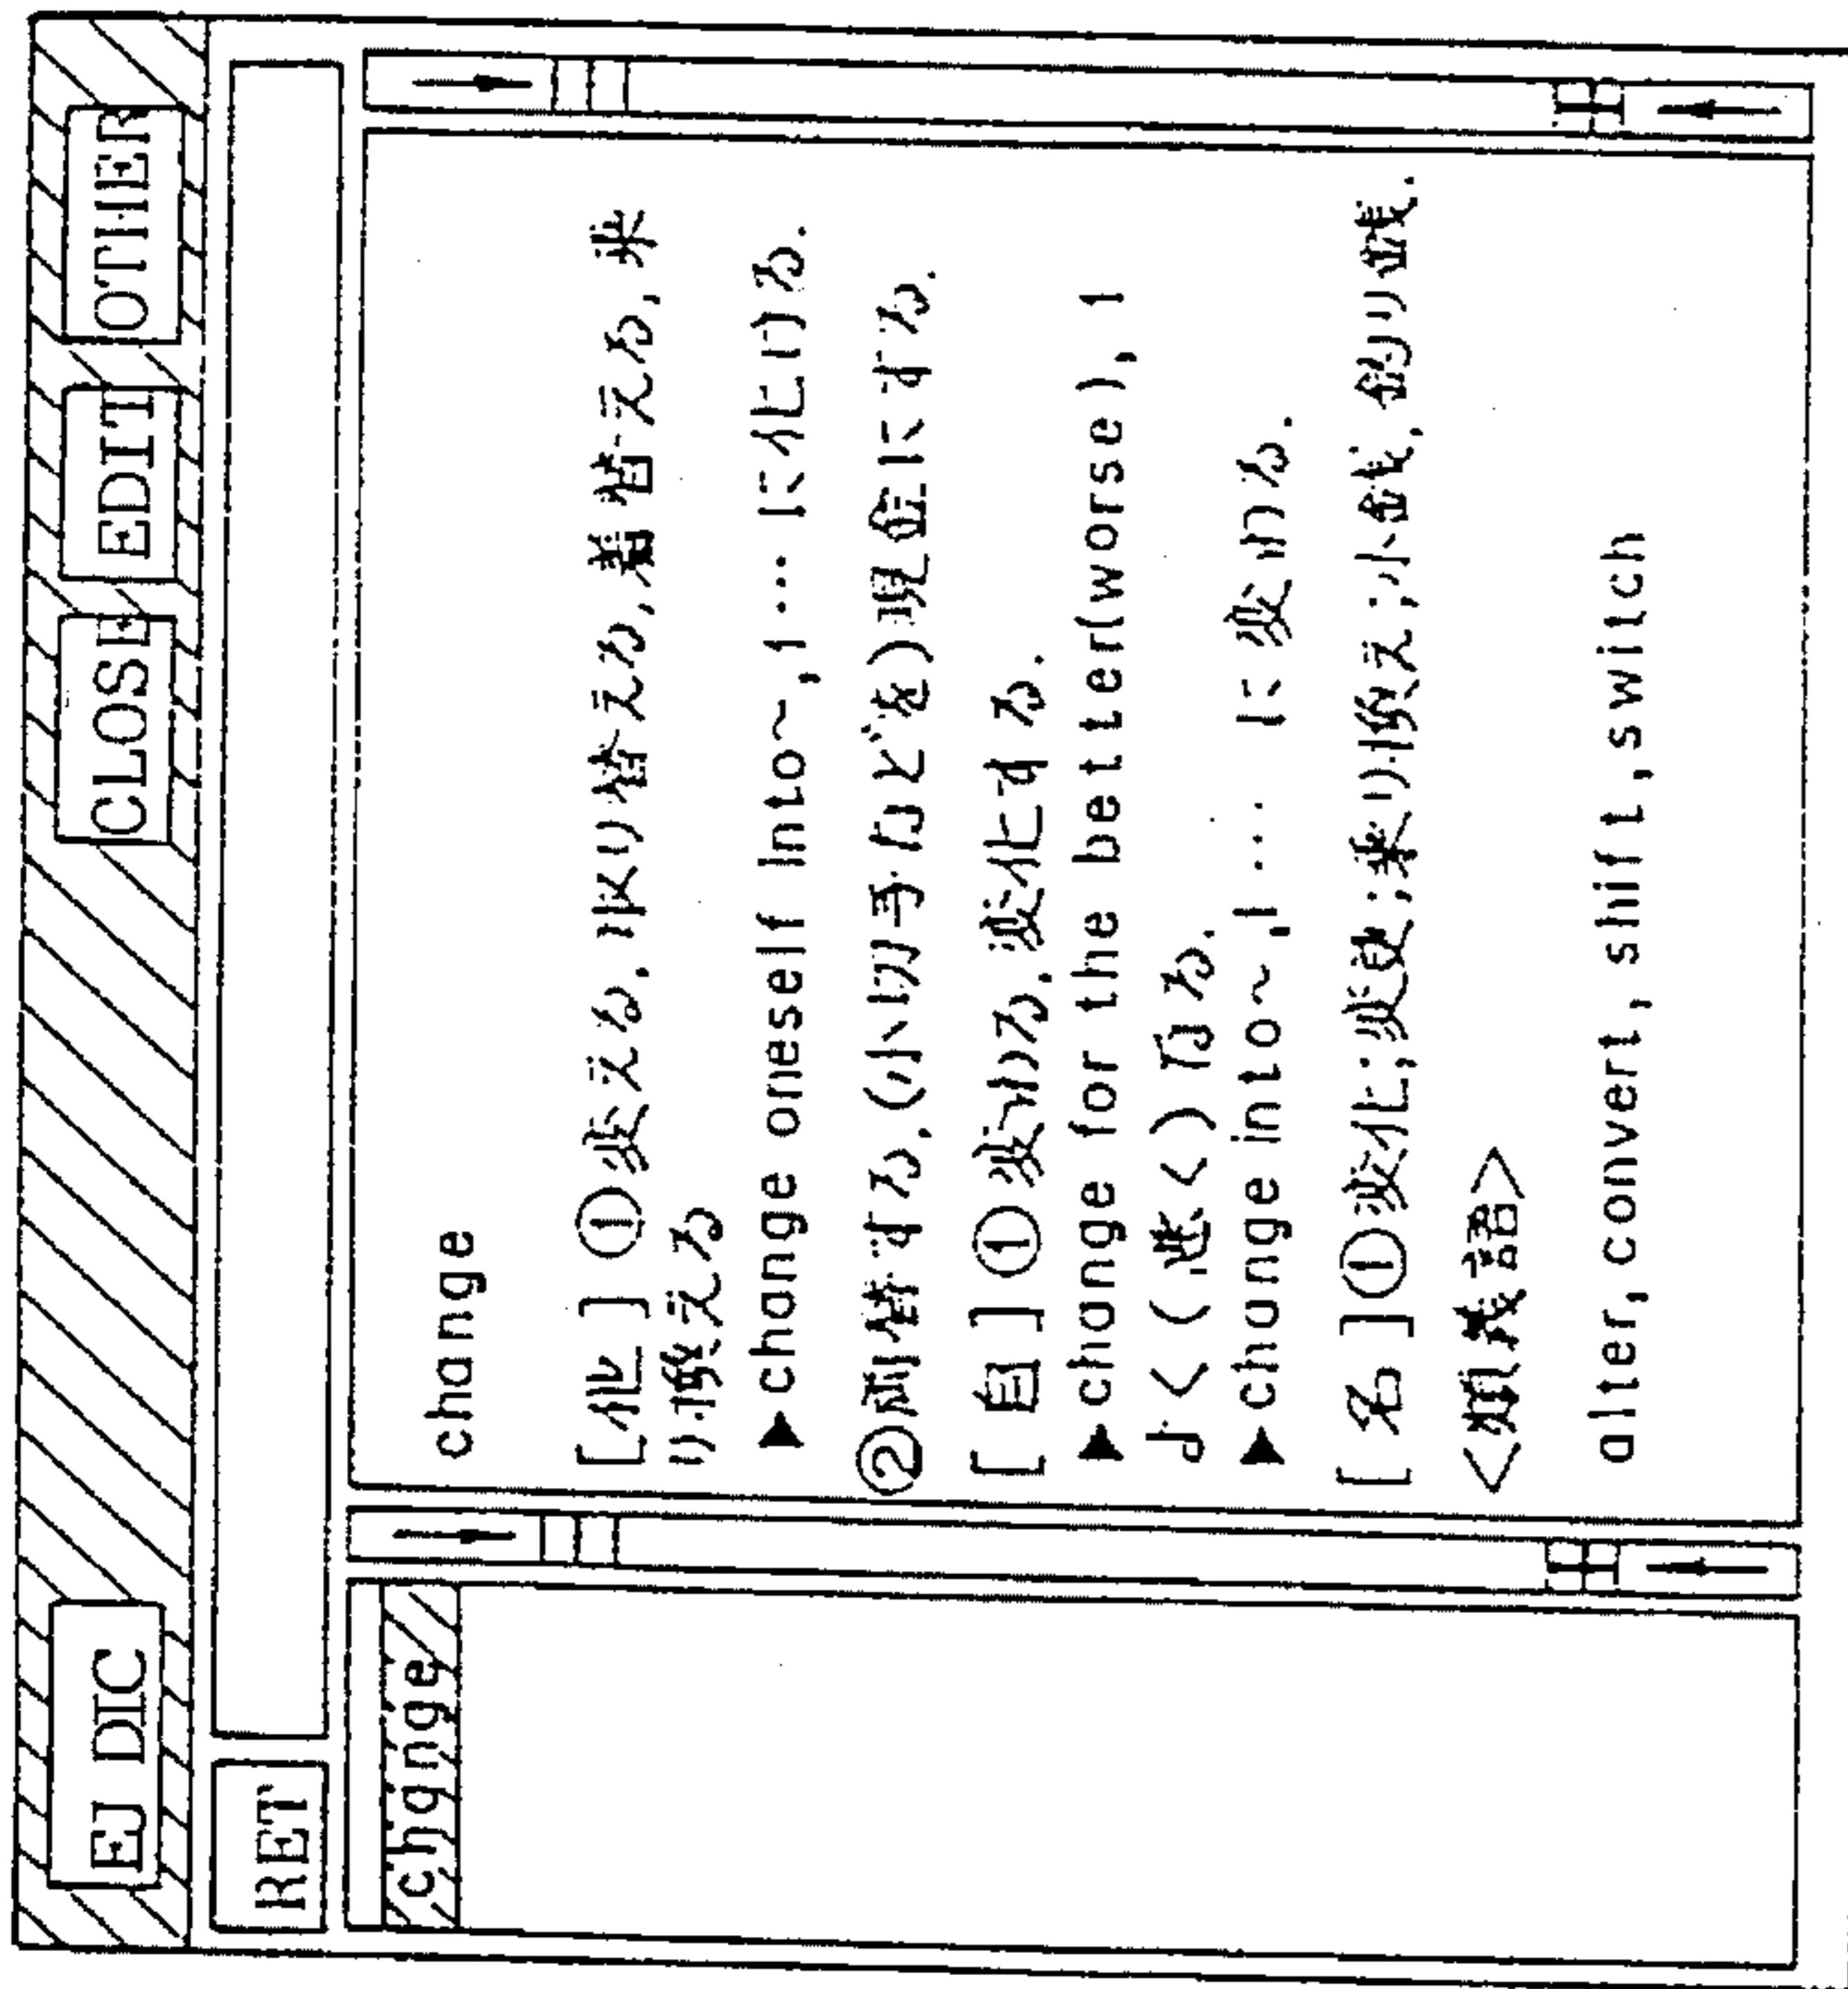 EJ DIC
CLOSE
EDIT
OTHER
RET
change
change
[他]①変える, 取り替える, 着替える, 乗
り換える
▲change oneself into~, 1… に化ける.
②両替する, (小切手などを)現金にする.
[自]①変わる, 変化する.
▲change for the better(worse), 1
よく(悪く)なる.
▲change into~, 1… に変わる.
[名]①変化;変更;乗り換え;小銭, 釣り銭.
<類義語>
alter, convert, shift, switch